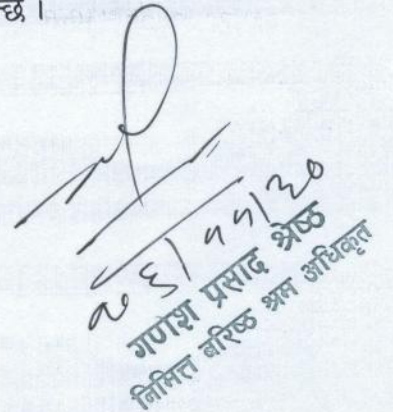 छ।
२०६।११।३०
गणेश प्रसाद श्रेष्ठ
निमित्त बरिष्ठ श्रम अधिकृत